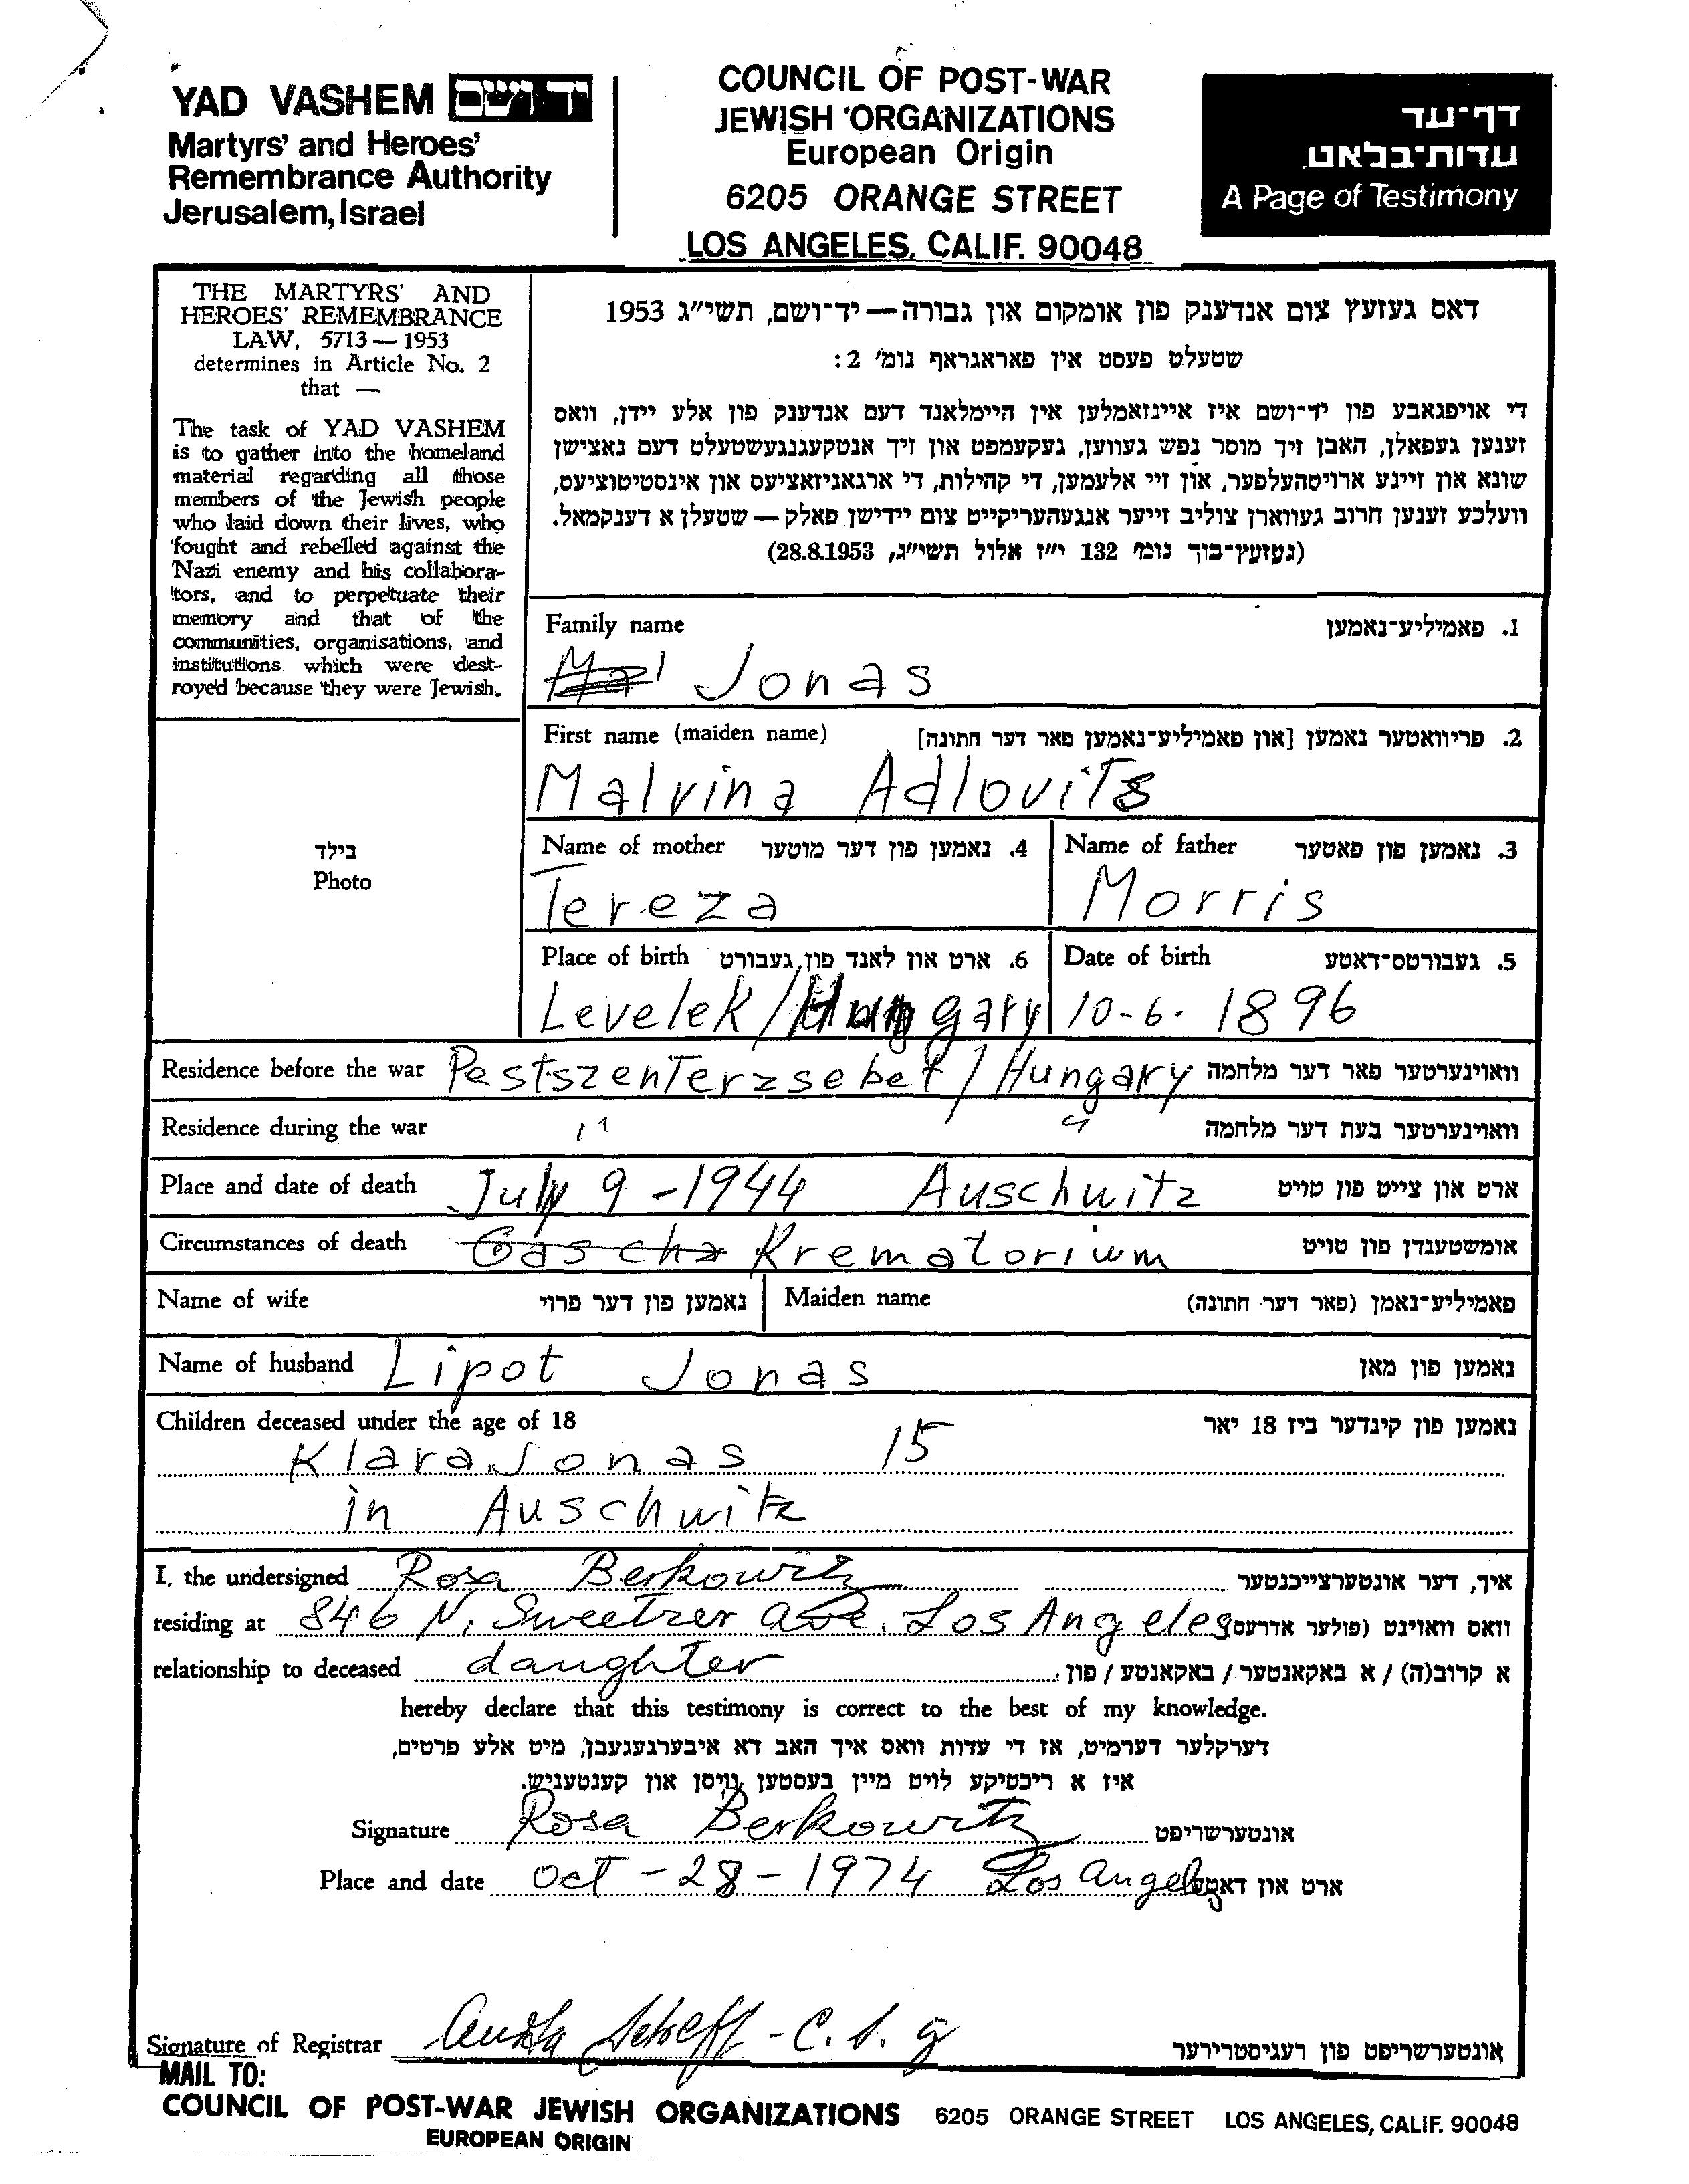 YAD VASHEM יד ושם
Martyrs' and Heroes'
Remembrance Authority
Jerusalem, Israel
COUNCIL OF POST-WAR
JEWISH ORGANIZATIONS
European Origin
6205 ORANGE STREET
LOS ANGELES, CALIF. 90048
דף-עד
עדות-בלאט
A Page of Testimony
THE MARTYRS' AND
HEROES' REMEMBRANCE
LAW, 5713 — 1953
determines in Article No. 2
that —
The task of YAD VASHEM
is to gather into the homeland
material regarding all those
members of the Jewish people
who laid down their lives, who
fought and rebelled against the
Nazi enemy and his collabora-
tors, and to perpetuate their
memory and that of the
communities, organisations, and
institutions which were dest-
royed because they were Jewish.
דאס געזעץ צום אנדענק פון אומקום און גבורה — יד-ושם, תשי"ג 1953
שטעלט פעסט אין פאראגראף נומ' 2:
די אויפגאבע פון יד-ושם איז איינזאמלען אין היימלאנד דעם אנדענק פון אלע יידן, וואס
זענען געפאלן, האבן זיך מוסר נפש געווען, געקעמפט און זיך אנטקעגנגעשטעלט דעם נאצישן
שונא און זיינע ארויסהעלפער, און זיי אלעמען, די קהילות, די ארגאניזאציעס און אינסטיטוציעס,
וועלכע זענען חרוב געווארן צוליב זייער אנגעהעריקייט צום יידישן פאלק — שטעלן א דענקמאל.
(געזעץ-בוך נומ' 132 י"ז אלול תשי"ג, 28.8.1953)
Family name 1. פאמיליע-נאמען
Jonas
First name (maiden name) 2. פריוואטער נאמען [און פאמיליע-נאמען פאר דער חתונה]
Malvina Adlovits
Name of mother 4. נאמען פון דער מוטער Name of father 3. נאמען פון פאטער
Tereza Morris
Place of birth 6. ארט און לאנד פון געבורט Date of birth 5. געבורטס-דאטע
Levelek / Hungary 10-6. 1896
בילד
Photo
Residence before the war Pestszenterzsebet / Hungary וואוינערטער פאר דער מלחמה
Residence during the war " " וואוינערטער בעת דער מלחמה
Place and date of death July 9 - 1944 Auschwitz ארט און צייט פון טויט
Circumstances of death Gas cha Krematorium אומשטענדן פון טויט
Name of wife נאמען פון דער פרוי Maiden name פאמיליע-נאמן (פאר דער חתונה)
Name of husband Lipot Jonas נאמען פון מאן
Children deceased under the age of 18 נאמען פון קינדער ביז 18 יאר
Klara Jonas 15
in Auschwitz
I, the undersigned Rosa Berkowitz איך, דער אונטערצייכנטער
residing at 846 N. Sweetzer ave. Los Angeles וואס וואוינט (פולער אדרעס
relationship to deceased daughter א קרוב(ה) / א באקאנטער / באקאנטע / פון
hereby declare that this testimony is correct to the best of my knowledge.
דערקלער דערמיט, אז די עדות וואס איך האב דא איבערגעגעבן, מיט אלע פרטים,
איז א ריכטיקע לויט מיין בעסטען וויסן און קענטעניש.
Signature Rosa Berkowitz אונטערשריפט
Place and date Oct - 28 - 1974 Los Angeles ארט און דאטע
Signature of Registrar אונטערשריפט פון רעגיסטרירער
MAIL TO:
COUNCIL OF POST-WAR JEWISH ORGANIZATIONS 6205 ORANGE STREET LOS ANGELES, CALIF. 90048
EUROPEAN ORIGIN